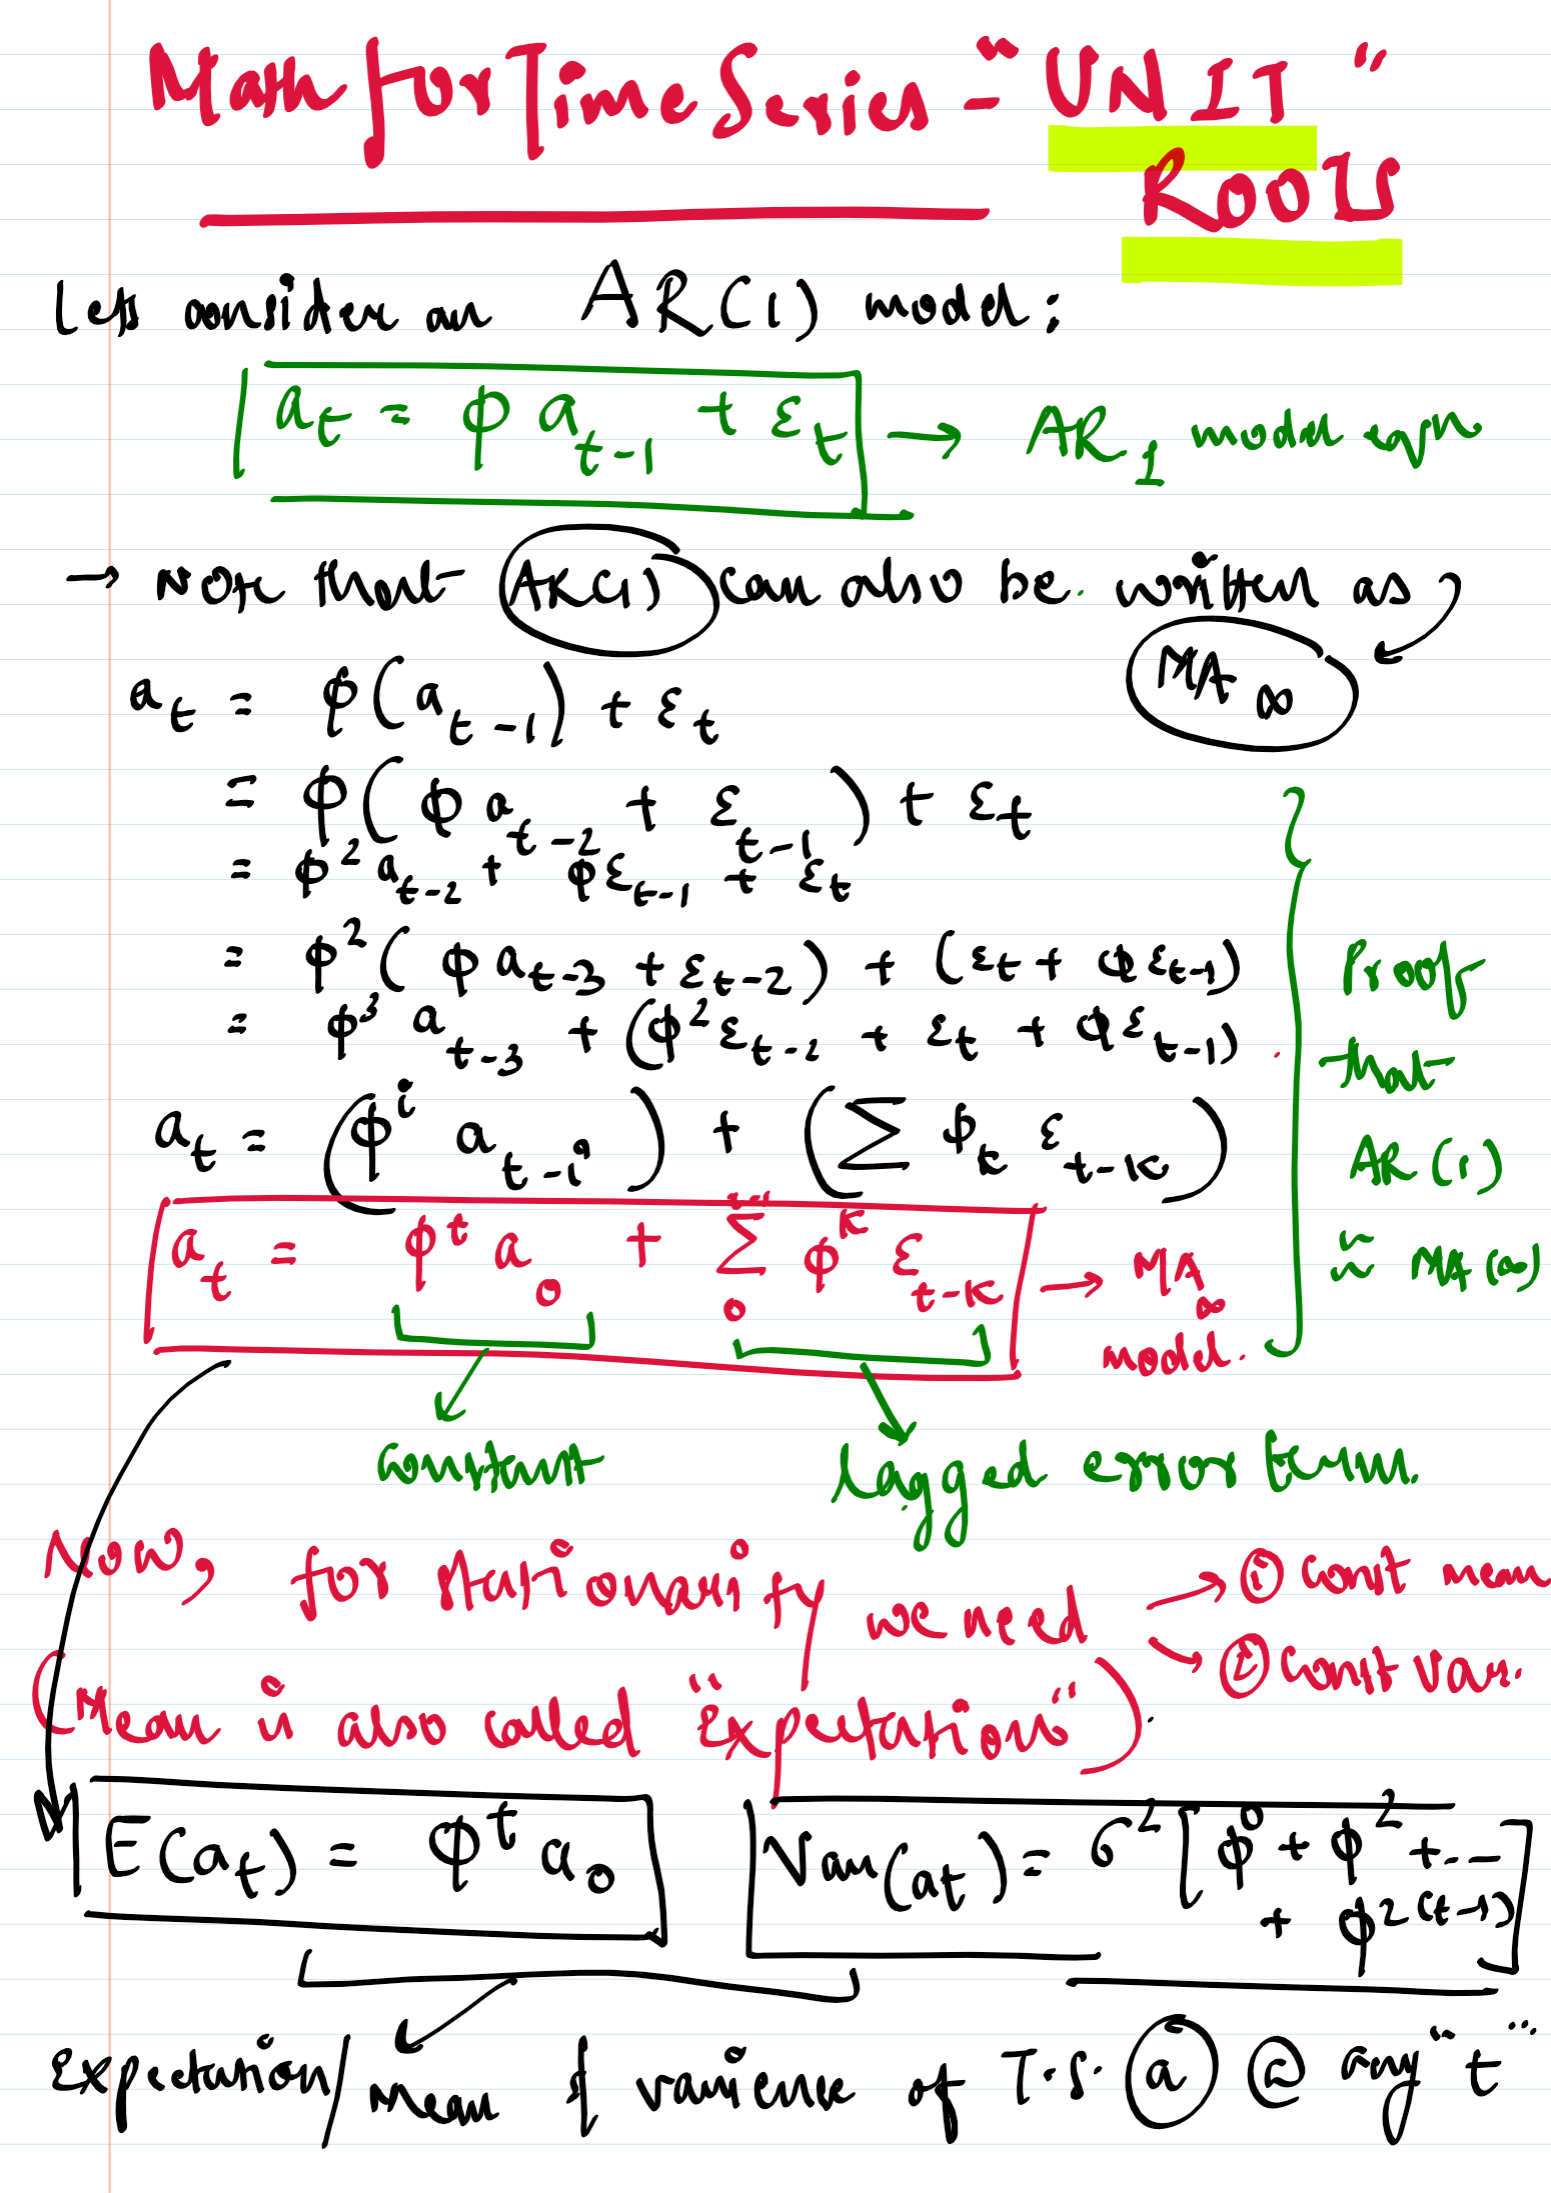 Math for Time Series - "UNIT"
ROOTS
Lets consider an AR(1) model:
a_t = φ a_{t-1} + ε_t → AR_1 model eqn
→ Note that AR(1) can also be written as
MA_∞
a_t = φ(a_{t-1}) + ε_t
= φ(φ a_{t-2} + ε_{t-1}) + ε_t
= φ² a_{t-2} + φε_{t-1} + ε_t
= φ²(φ a_{t-3} + ε_{t-2}) + (ε_t + φε_{t-1})
= φ³ a_{t-3} + (φ²ε_{t-2} + ε_t + φε_{t-1})
a_t = (φ^i a_{t-i}) + (Σ φ_k ε_{t-k})
Proof
that
AR(1)
≈ MA(∞)
a_t = φ^t a_0 + Σ_0^{t-1} φ^k ε_{t-k} → MA_∞
model.
constant
lagged error term.
Now, for stationarity we need → ① const mean
→ ② const var.
(Mean is also called "Expectation").
E(a_t) = φ^t a_0
Var(a_t) = σ² [φ⁰ + φ² + -- + φ^{2(t-1)}]
Expectation/Mean & varience of T.S. a @ any "t"